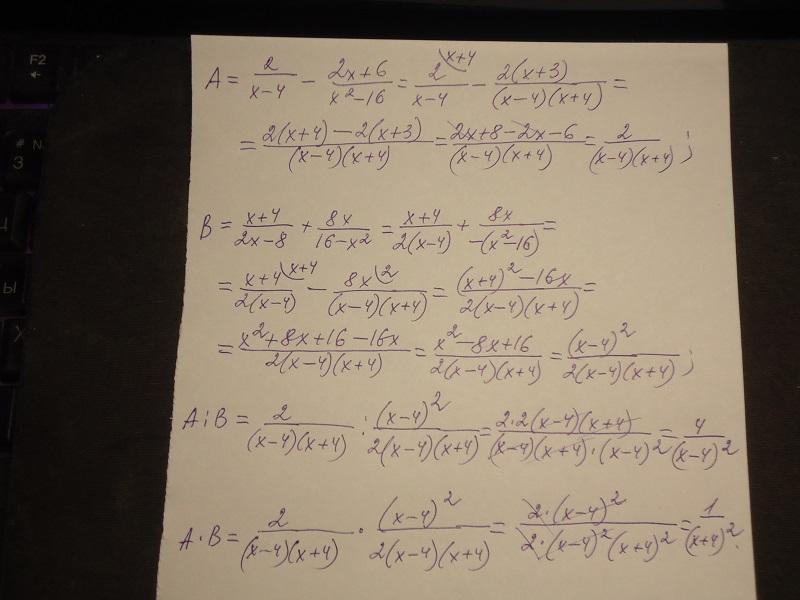 F2
# N
3
Ы
A = 2/(x-4) - (2x+6)/(x²-16) = 2^(x+4)/(x-4) - 2(x+3)/((x-4)(x+4)) =
= (2(x+4)-2(x+3))/((x-4)(x+4)) = (2x+8-2x-6)/((x-4)(x+4)) = 2/((x-4)(x+4)) ;
B = (x+4)/(2x-8) + 8x/(16-x²) = (x+4)/(2(x-4)) + 8x/(-(x²-16)) =
= (x+4)^(x+4)/(2(x-4)) - 8x^2/((x-4)(x+4)) = ((x+4)²-16x)/(2(x-4)(x+4)) =
= (x²+8x+16-16x)/(2(x-4)(x+4)) = (x²-8x+16)/(2(x-4)(x+4)) = (x-4)²/(2(x-4)(x+4)) ;
A:B = 2/((x-4)(x+4)) : (x-4)²/(2(x-4)(x+4)) = (2·2(x-4)(x+4))/((x-4)(x+4)·(x-4)²) = 4/(x-4)²
A·B = 2/((x-4)(x+4)) · (x-4)²/(2(x-4)(x+4)) = (2·(x-4)²)/(2·(x-4)²(x+4)²) = 1/(x+4)².